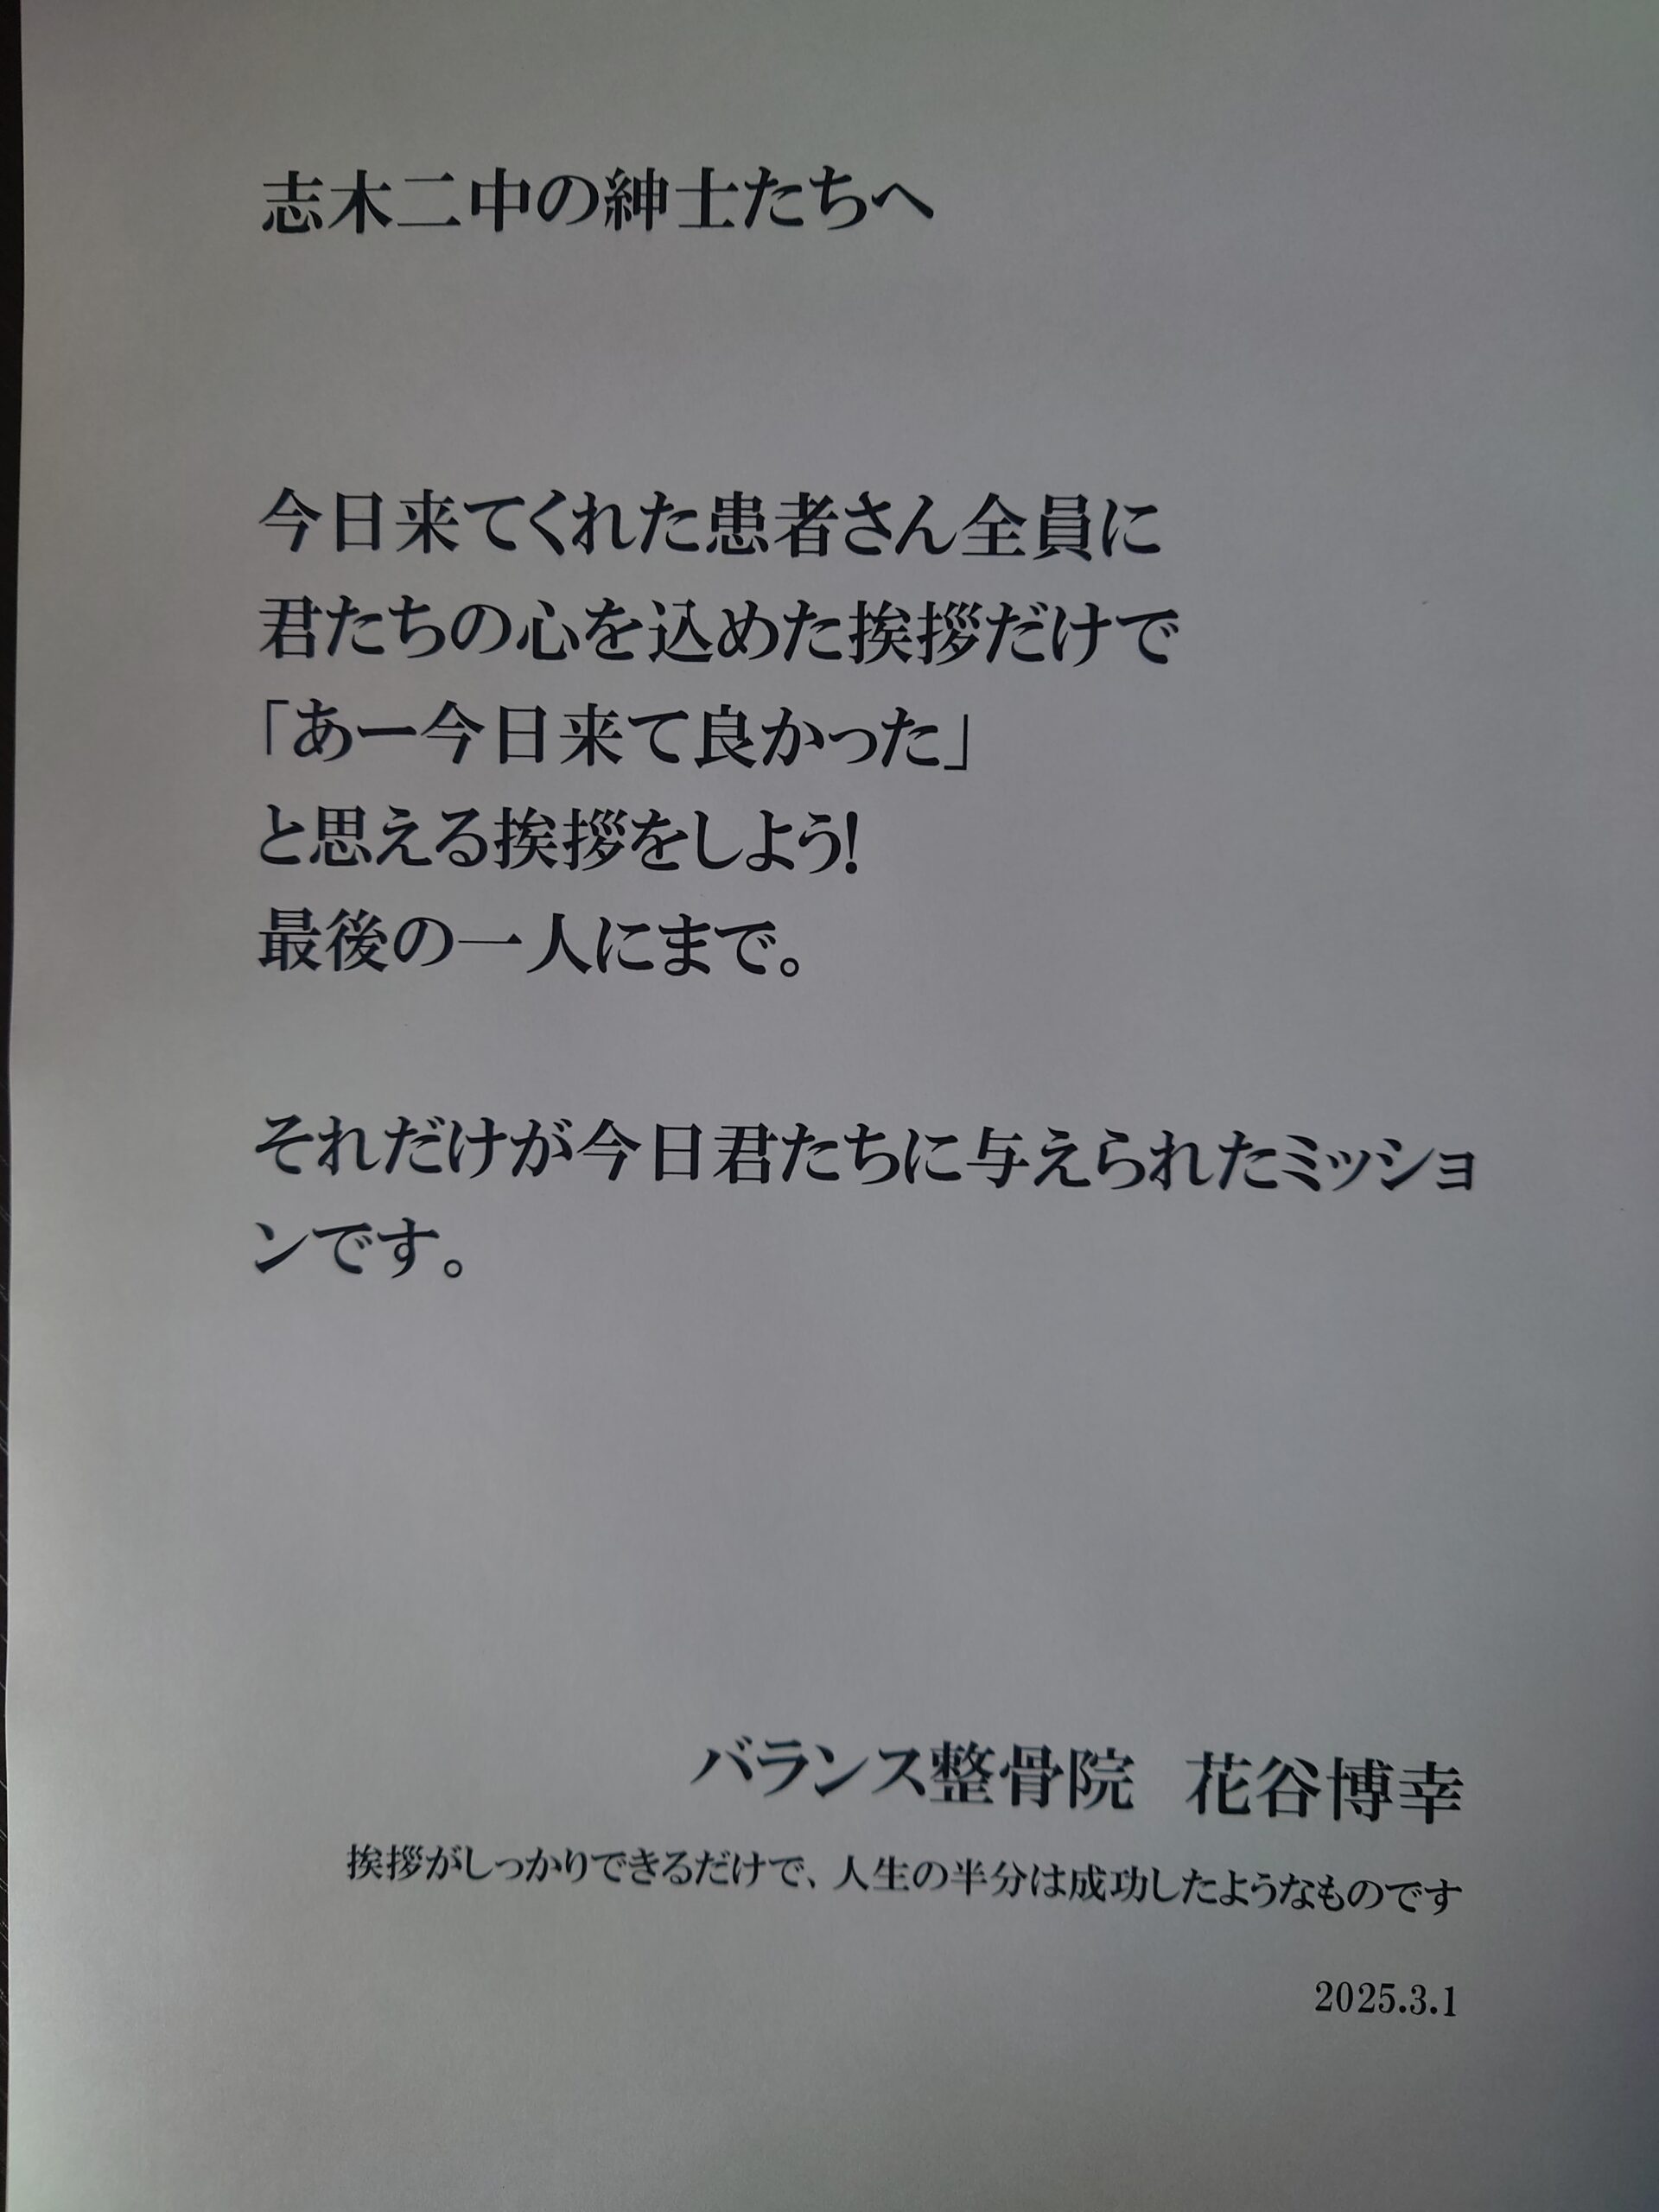 志木二中の紳士たちへ
今日来てくれた患者さん全員に
君たちの心を込めた挨拶だけで
「あー今日来て良かった」
と思える挨拶をしよう!
最後の一人にまで。
それだけが今日君たちに与えられたミッショ
ンです。
バランス整骨院　花谷博幸
挨拶がしっかりできるだけで、人生の半分は成功したようなものです
2025.3.1